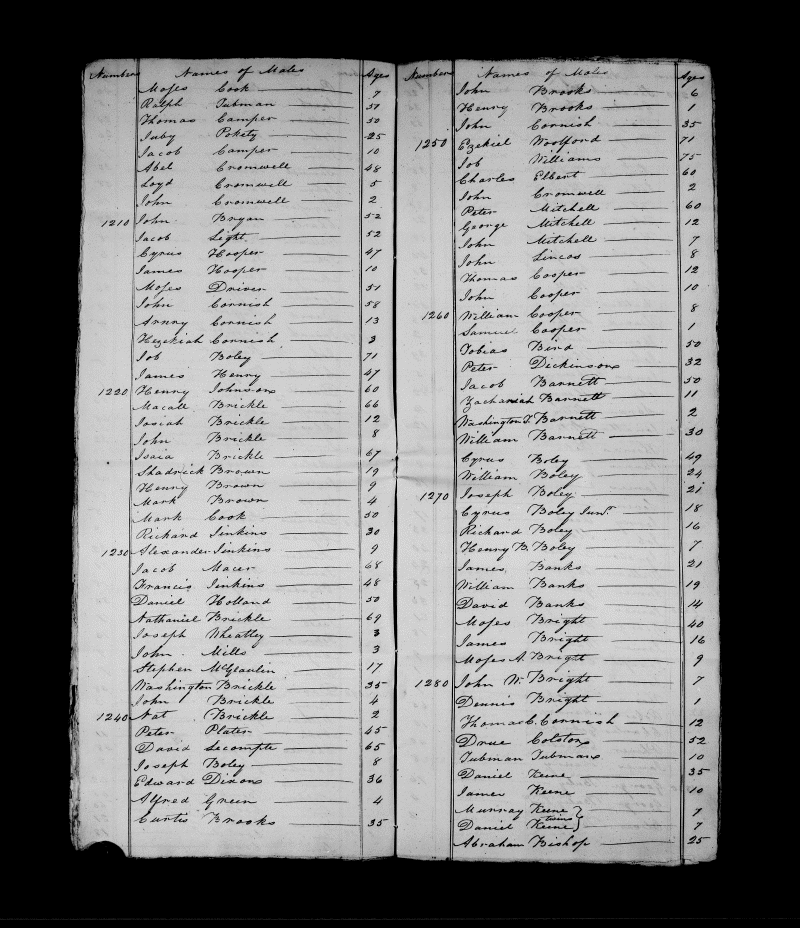 Numbers Names of Males Ages
Moses Cook 7
Ralph Tubman 51
Thomas Camper 50
Juby Pokety 25
Jacob Camper 10
Abel Cromwell 48
Loyd Cromwell 5
John Cromwell 2
1210 John Bryan 52
Jacob Light 52
Cyrus Hooper 47
James Hooper 10
Moses Driver 51
John Cornish 58
Cornish 13
Hezekiah Cornish 3
Job Boley 71
James Henry 47
1220 Henry Johnson 60
Macall Brickle 66
Josiah Brickle 12
John Brickle 8
Isaia Brickle 67
Shadrick Brown 19
Henry Brown 9
Mark Brown 4
Mark Cook 50
Rickard Jinkins 30
1230 Alexander Jinkins 9
Jacob Macer 68
Francis Jinkins 48
Daniel Holland 50
Nathaniel Brickle 69
Joseph Wheatley 3
John Mills 3
Stephen 17
Washington Brickle 35
John Brickle 4
1240 Nat Brickle 2
Peter Plater 45
David Lecompte 65
Joseph Boley 8
Edward Dixon 36
Alfred Green 4
Curtis Brooks 35
Numbers Names of Males Ages
John Brooks 6
Henry Brooks 1
John Cornish 35
1250 Ezekiel Woolford 71
Job Williams 75
Charles Elbert 60
John Cromwell 2
Peter Mitchell 60
George Mitchell 12
John Mitchell 7
John Lincos 8
Thomas Cooper 12
John Cooper 10
1260 William Cooper 8
Samuel Cooper 1
Tobias Bird 50
Peter Dickinson 32
Jacob Barnett 50
Zachariah Barnett 11
Washington T. Barnett 2
William Barnett 30
Cyrus Boley 49
William Boley 24
1270 Joseph Boley 21
Cyrus Boley Junr. 18
Richard Boley 16
Henry B. Boley 7
James Banks 21
William Banks 19
David Banks 14
Moses Bright 40
James Bright 16
Moses A. Bright 9
1280 John W. Bright 7
Dennis Bright 1
Thomas C. Cornish 12
Drue Colston 52
Tubman Tubman 10
Daniel Keene 35
James Keene 10
Murray Keene 7
twins
Daniel Keene 7
Abraham Bishop 25